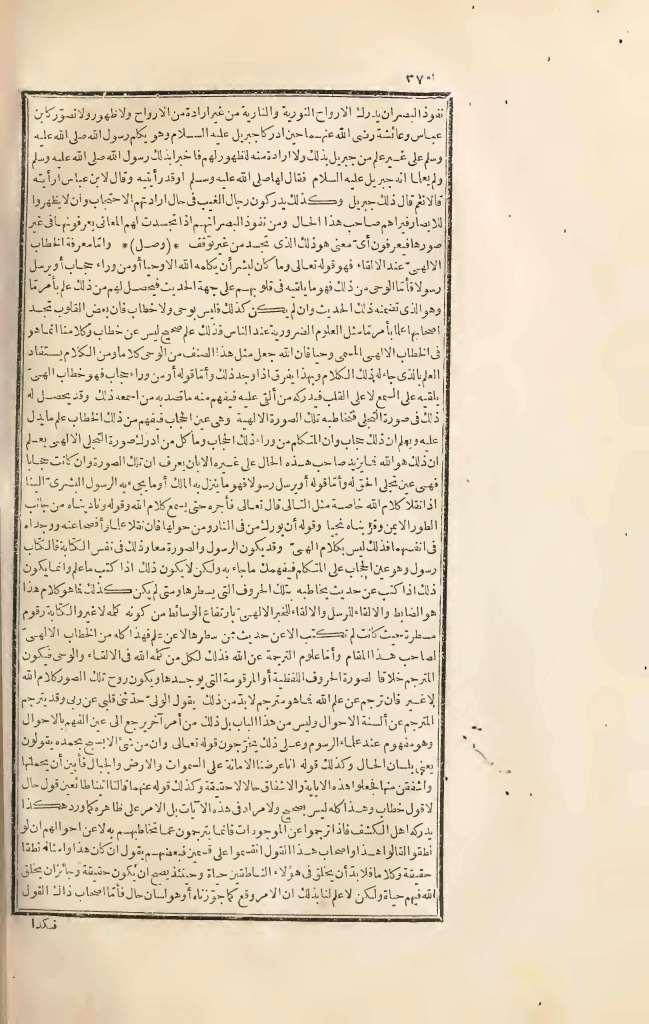 ٣٧٥
نفوذ البصر ان يدرك الارواح النورية والنارية من غير ارادة من الارواح ولا ظهور ولا تصوّر كابن
عباس وعائشة رضى الله عنهما حين ادركا جبريل عليه السلام وهو يكلم رسول الله صلى الله عليه
وسلم على غير علم من جبريل بذلك ولا ارادة منه للظهور لهم فاخبرا بذلك رسول الله صلى الله عليه وسلم
ولم يعلما انه جبريل عليه السلام فقال لها صلى الله عليه وسلم أوقد رأيتيه وقال لابن عباس ارأيته
قالا نعم قال ذلك جبريل وكذلك يدركون رجال الغيب فى حال ارادتهم الاحتجاب وأن لا يظهروا
للابصار فيراهم صاحب هذا الحال ومن نفوذ البصر انهم اذا تجسدت لهم المعانى يعرفونها فى غير
صورها فيعرفون أىّ معنى هو ذلك الذى تجسد من غير توقف *(وصل)* وامّا معرفة الخطاب
الالهىّ عند الالقاء فهو قوله تعالى وما كان لبشر أن يكلمه الله الا وحيا أو من وراء حجاب أو يرسل
رسولا فأمّا الوحى من ذلك فهو ما يلقيه فى قلوبهم على جهة الحديث فيحصل لهم من ذلك علم بأمر مّا
وهو الذى تضمنه ذلك الحديث وان لم يكن كذلك فليس بوحى ولا خطاب فان بعض القلوب تجد
اصحابها علما بأمر مّا مثل العلوم الضرورية عند الناس فذلك علم صحيح ليس عن خطاب وكلامنا انما هو
فى الخطاب الالهىّ المسمى وحيا فان الله جعل مثل هذا الصنف من الوحى كلاما ومن الكلام يستفاد
العلم بالذى جاء له ذلك الكلام وبهذا يفرق اذا وجد ذلك وأمّا قوله أو من وراء حجاب فهو خطاب الهىّ
يلقيه على السمع لا على القلب فيدركه من ألقى عليه فيفهم منه ما قصد به من اسمعه ذلك وقد يحصل له
ذلك فى صورة التجلى فتخاطبه تلك الصورة الالهية وهى عين الحجاب فيفهم من ذلك الخطاب علم ما يدل
عليه ويعلم ان ذلك حجاب وان المتكلم من وراء ذلك الحجاب وما كل من ادرك صورة التجلى الالهى يعلم
ان ذلك هو الله فما يزيد صاحب هذه الحال على غيره الا بان يعرف ان تلك الصورة وان كانت حجابا
فهى عين تجلى الحق له وأمّا قوله أو يرسل رسولا فهو ما ينزل به الملك أو ما يجىء به الرسول البشرىّ الينا
اذا نقلا كلام الله خاصة مثل التالى قال تعالى فأجره حتى يسمع كلام الله وقوله وناديناه من جانب
الطور الايمن وقرّبناه نجيا وقوله أن بورك من فى النار ومن حولها فان نقلا علما وأفصحا عنه ووجداه
فى انفسهما فذلك ليس بكلام الهىّ وقد يكون الرسول والصورة معا وذلك فى نفس الكتابة فالكتاب
رسول وهو عين الحجاب على المتكلم فيفهمك ما جاء به ولكن لا يكون ذلك اذا كتب ما علم وانما يكون
ذلك اذا كتب عن حديث يخاطبه بتلك الحروف التى يسطرها ومتى لم يكن كذلك فما هو كلام هذا
هو الضابط والالقاء للرسل والالقاء للخبر الالهىّ بارتفاع الوسائط من كونه كلمه لا غير والكتابة رقوم
مسطرة حيث كانت لم تكتب الا عن حديث ممن سطرها لا عن علم فهذا كله من الخطاب الالهىّ
لصاحب هذا المقام وأمّا علوم الترجمة عن الله فذلك لكل من كلمه الله فى الالقاء والوحى فيكون
المترجم خلاقا لصورة الحروف اللفظية أو المرقومة التى يوجدها ويكون روح تلك الصور كلام الله
لا غير فان ترجم عن علم الله فما هو مترجم لابدّ من ذلك يقول الولىّ حدّثنى قلبى عن ربى وقد يترجم
المترجم عن ألسنة الاحوال وليس من هذا الباب بل ذلك من أمر آخر يرجع الى عين الفهم بالاحوال
وهو مفهوم عند علماء الرسوم وعلى ذلك يخرّجون قوله تعالى وان من شئ الا يسبح بحمده يقولون
يعنى بلسان الحال وكذلك قوله انا عرضنا الامانة على السموات والارض والجبال فأبين أن يحملنها
وأشفقن منها فجعلوا هذه الاباية والاشفاق حالا لا حقيقة وكذلك قوله عنهما قالتا أتينا طائعين قول حال
لا قول خطاب وهذا كله ليس بصحيح ولا مراد فى هذه الآيات بل الامر على ظاهره كما ورد هكذا
يدركه اهل الكشف فاذا ترجموا عن الموجودات فانما يترجمون عما تخاطبهم به لا عن احوالهم ان لو
نطقوا لقالوا هذا واصحاب هذا القول انقسموا على قسمين فبعضهم يقول ان كان هذا وامثاله نطقا
حقيقة وكلاما فلابدّ أن يخلق فى هؤلاء الناطقين حياة وحينئذ يصح ان يكون حقيقة وجائز ان يخلق
الله فيهم حياة ولكن لا علم لنا بذلك ان الامر وقع كما جوّزناه أو هو لسان حال فأمّا اصحاب ذاك القول
فكذا